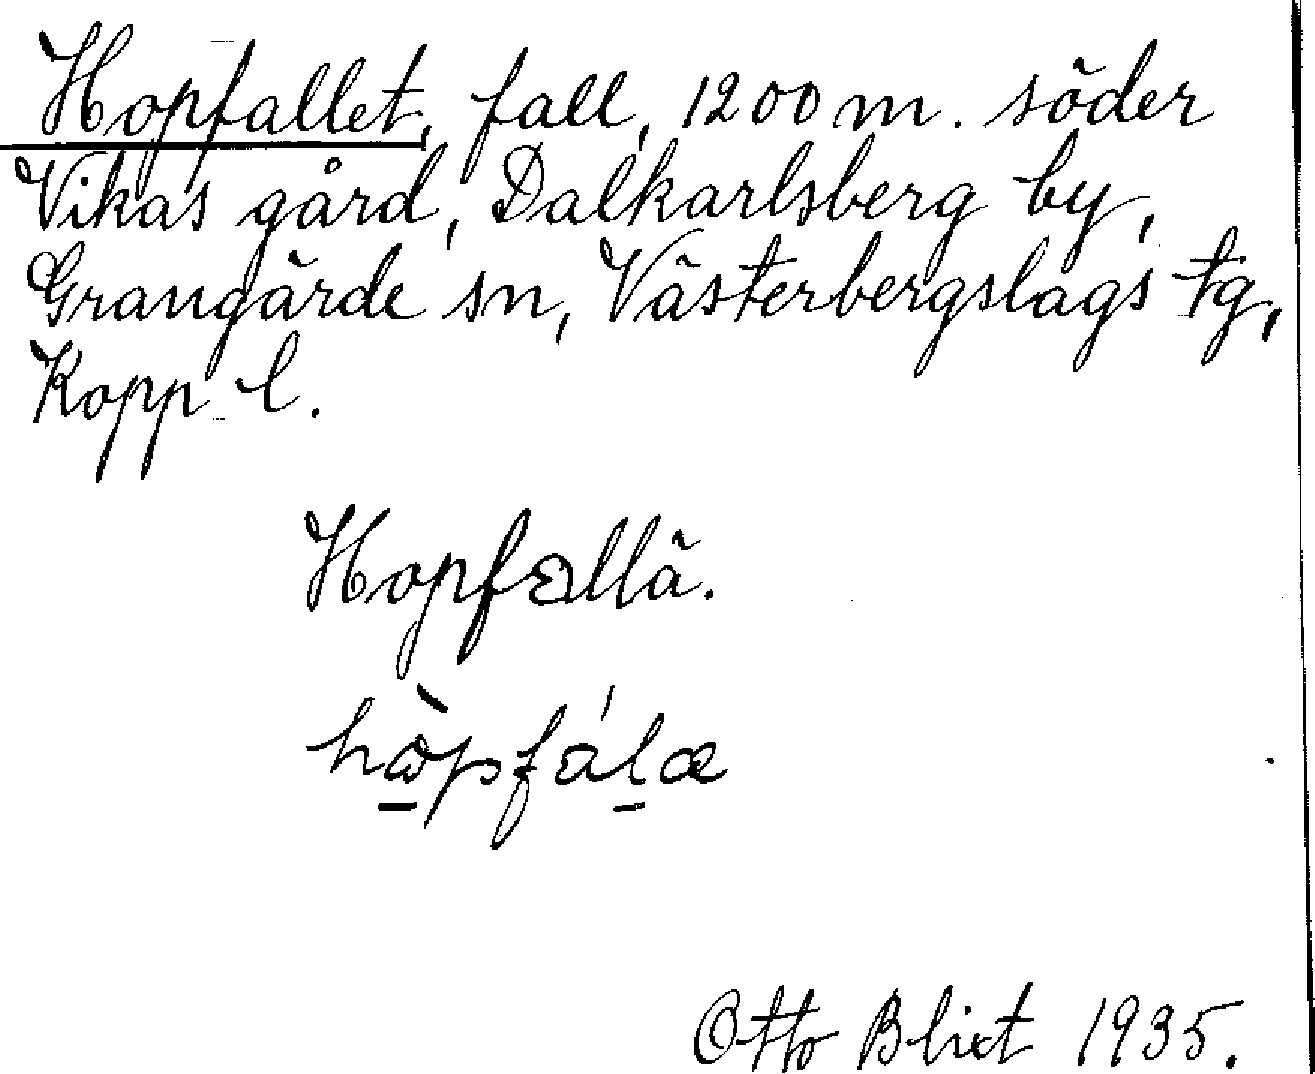 Hopfallet, fall, 1200 m. söder
Vikas gård, Dalkarlsberg by,
Grangärde sn, Västerbergslags tg,
Kopp. l.
Hopfallä.
hɷ̀pfálæ
Otto Blixt 1935.